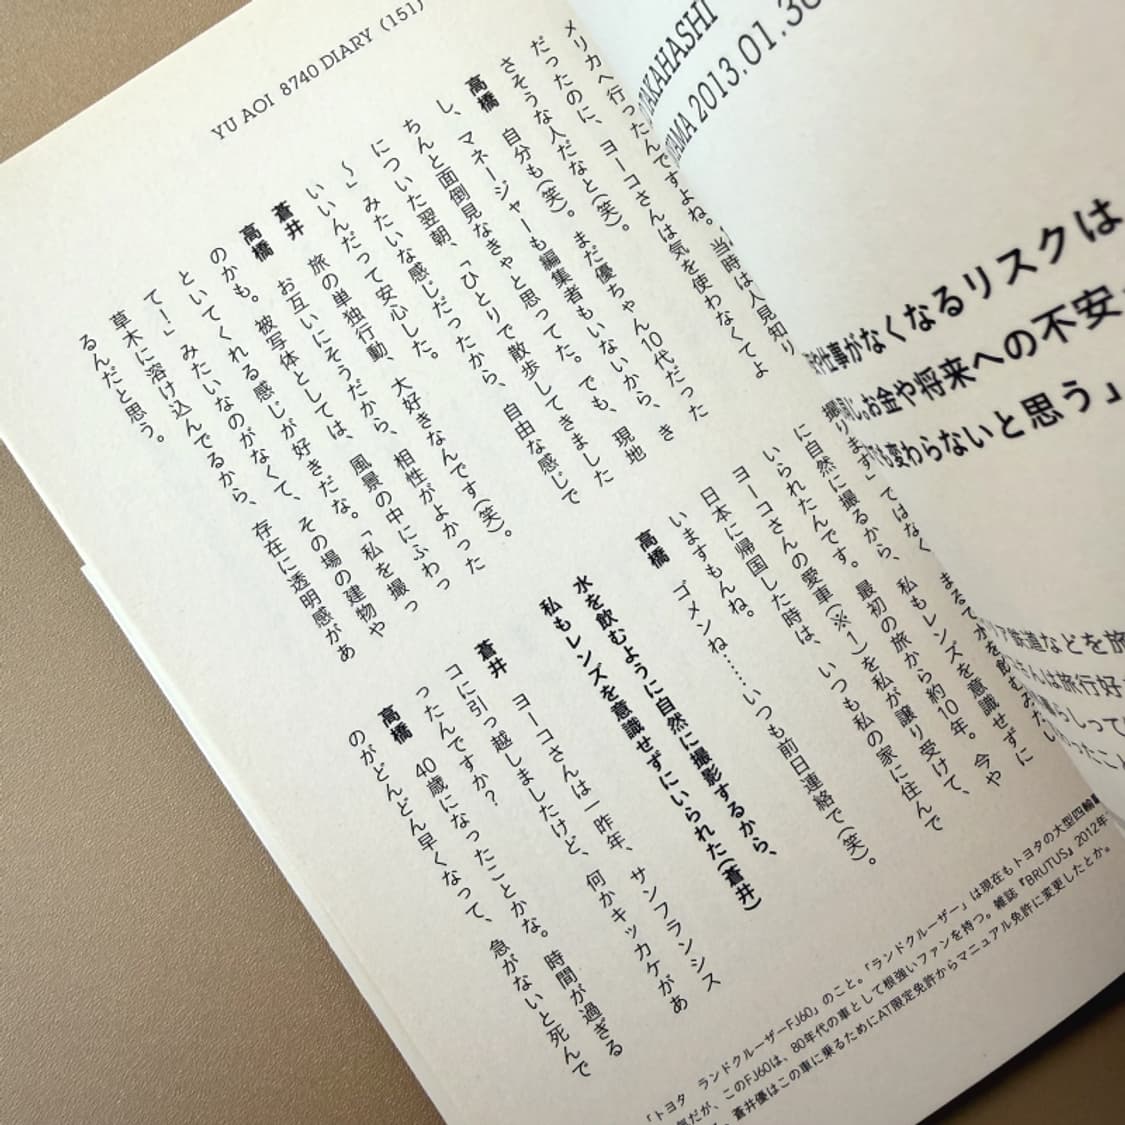 YU AOI 8740 DIARY (151)
メリカへ行ったんですよね。当時は人見知り
だったのに、ヨーコさんは気を使わなくてよ
さそうな人だなと(笑)。
高橋　自分も(笑)。まだ優ちゃん10代だった
し、マネージャーも編集者もいないから、き
ちんと面倒見なきゃと思ってた。でも、現地
についた翌朝、「ひとりで散歩してきました
〜」みたいな感じだったから、自由な感じで
いいんだって安心した。
蒼井　旅の単独行動、大好きなんです(笑)。
高橋　お互いにそうだから、相性がよかった
のかも。被写体としては、風景の中にふわっ
といてくれる感じが好きだな。「私を撮っ
て！」みたいなのがなくて、その場の建物や
草木に溶け込んでるから、存在に透明感があ
るんだと思う。
撮ります」ではなく、まるで水を飲むみたい
に自然に撮るから、私もレンズを意識せずに
いられたんです。最初の旅から約10年。今や
ヨーコさんの愛車(※1)を私が譲り受けて、
日本に帰国した時は、いつも私の家に住んで
いますもんね。
高橋　ゴメンね……いつも前日連絡で(笑)。
水を飲むように自然に撮影するから、
私もレンズを意識せずにいられた(蒼井)
蒼井　ヨーコさんは一昨年、サンフランシス
コに引っ越しましたけど、何かキッカケがあ
ったんですか？
高橋　40歳になったことかな。時間が過ぎる
のがどんどん早くなって、急がないと死んで
「トヨタ　ランドクルーザーFJ60」のこと。「ランドクルーザー」は現在もトヨタの大型四輪
気だが、このFJ60は、80年代の車として根強いファンを持つ。雑誌『BRUTUS』2012年
蒼井優はこの車に乗るためにAT限定免許からマニュアル免許に変更したとか。
TAKAHASHI
2013.01.
仕事がなくなるリスクは
お金や将来への不安
変わらないと思う」
鉄道などを旅
さんは旅行好